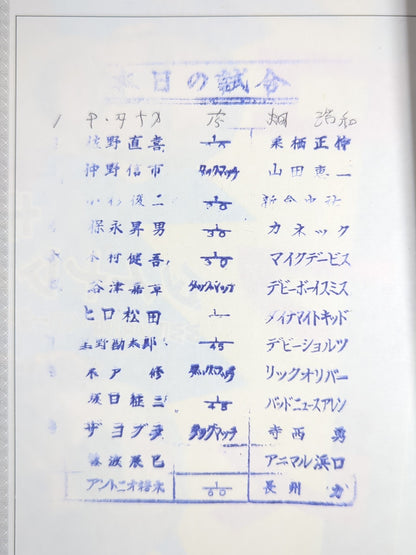 本日の試合
1 畑 浩和
佐野直喜 1/15 栗栖正伸
仲野信市 タッグマッチ 山田恵一
小杉俊二 1/20 新倉史祐
保永昇男 1/30 カネック
木村健吾 1/30 マイクデービス
谷津嘉章 タッグマッチ デビーボーイスミス
ヒロ松田 1 ダイナマイトキッド
上野勘太郎 1/45 デビーショルツ
木戸 修 タッグマッチ リックオリバー
坂口征二 1/45 バッドニュースアレン
ザコブラ タッグマッチ 寺西 勇
藤波辰巳 アニマル浜口
アントニオ猪木 1/60 長州 力